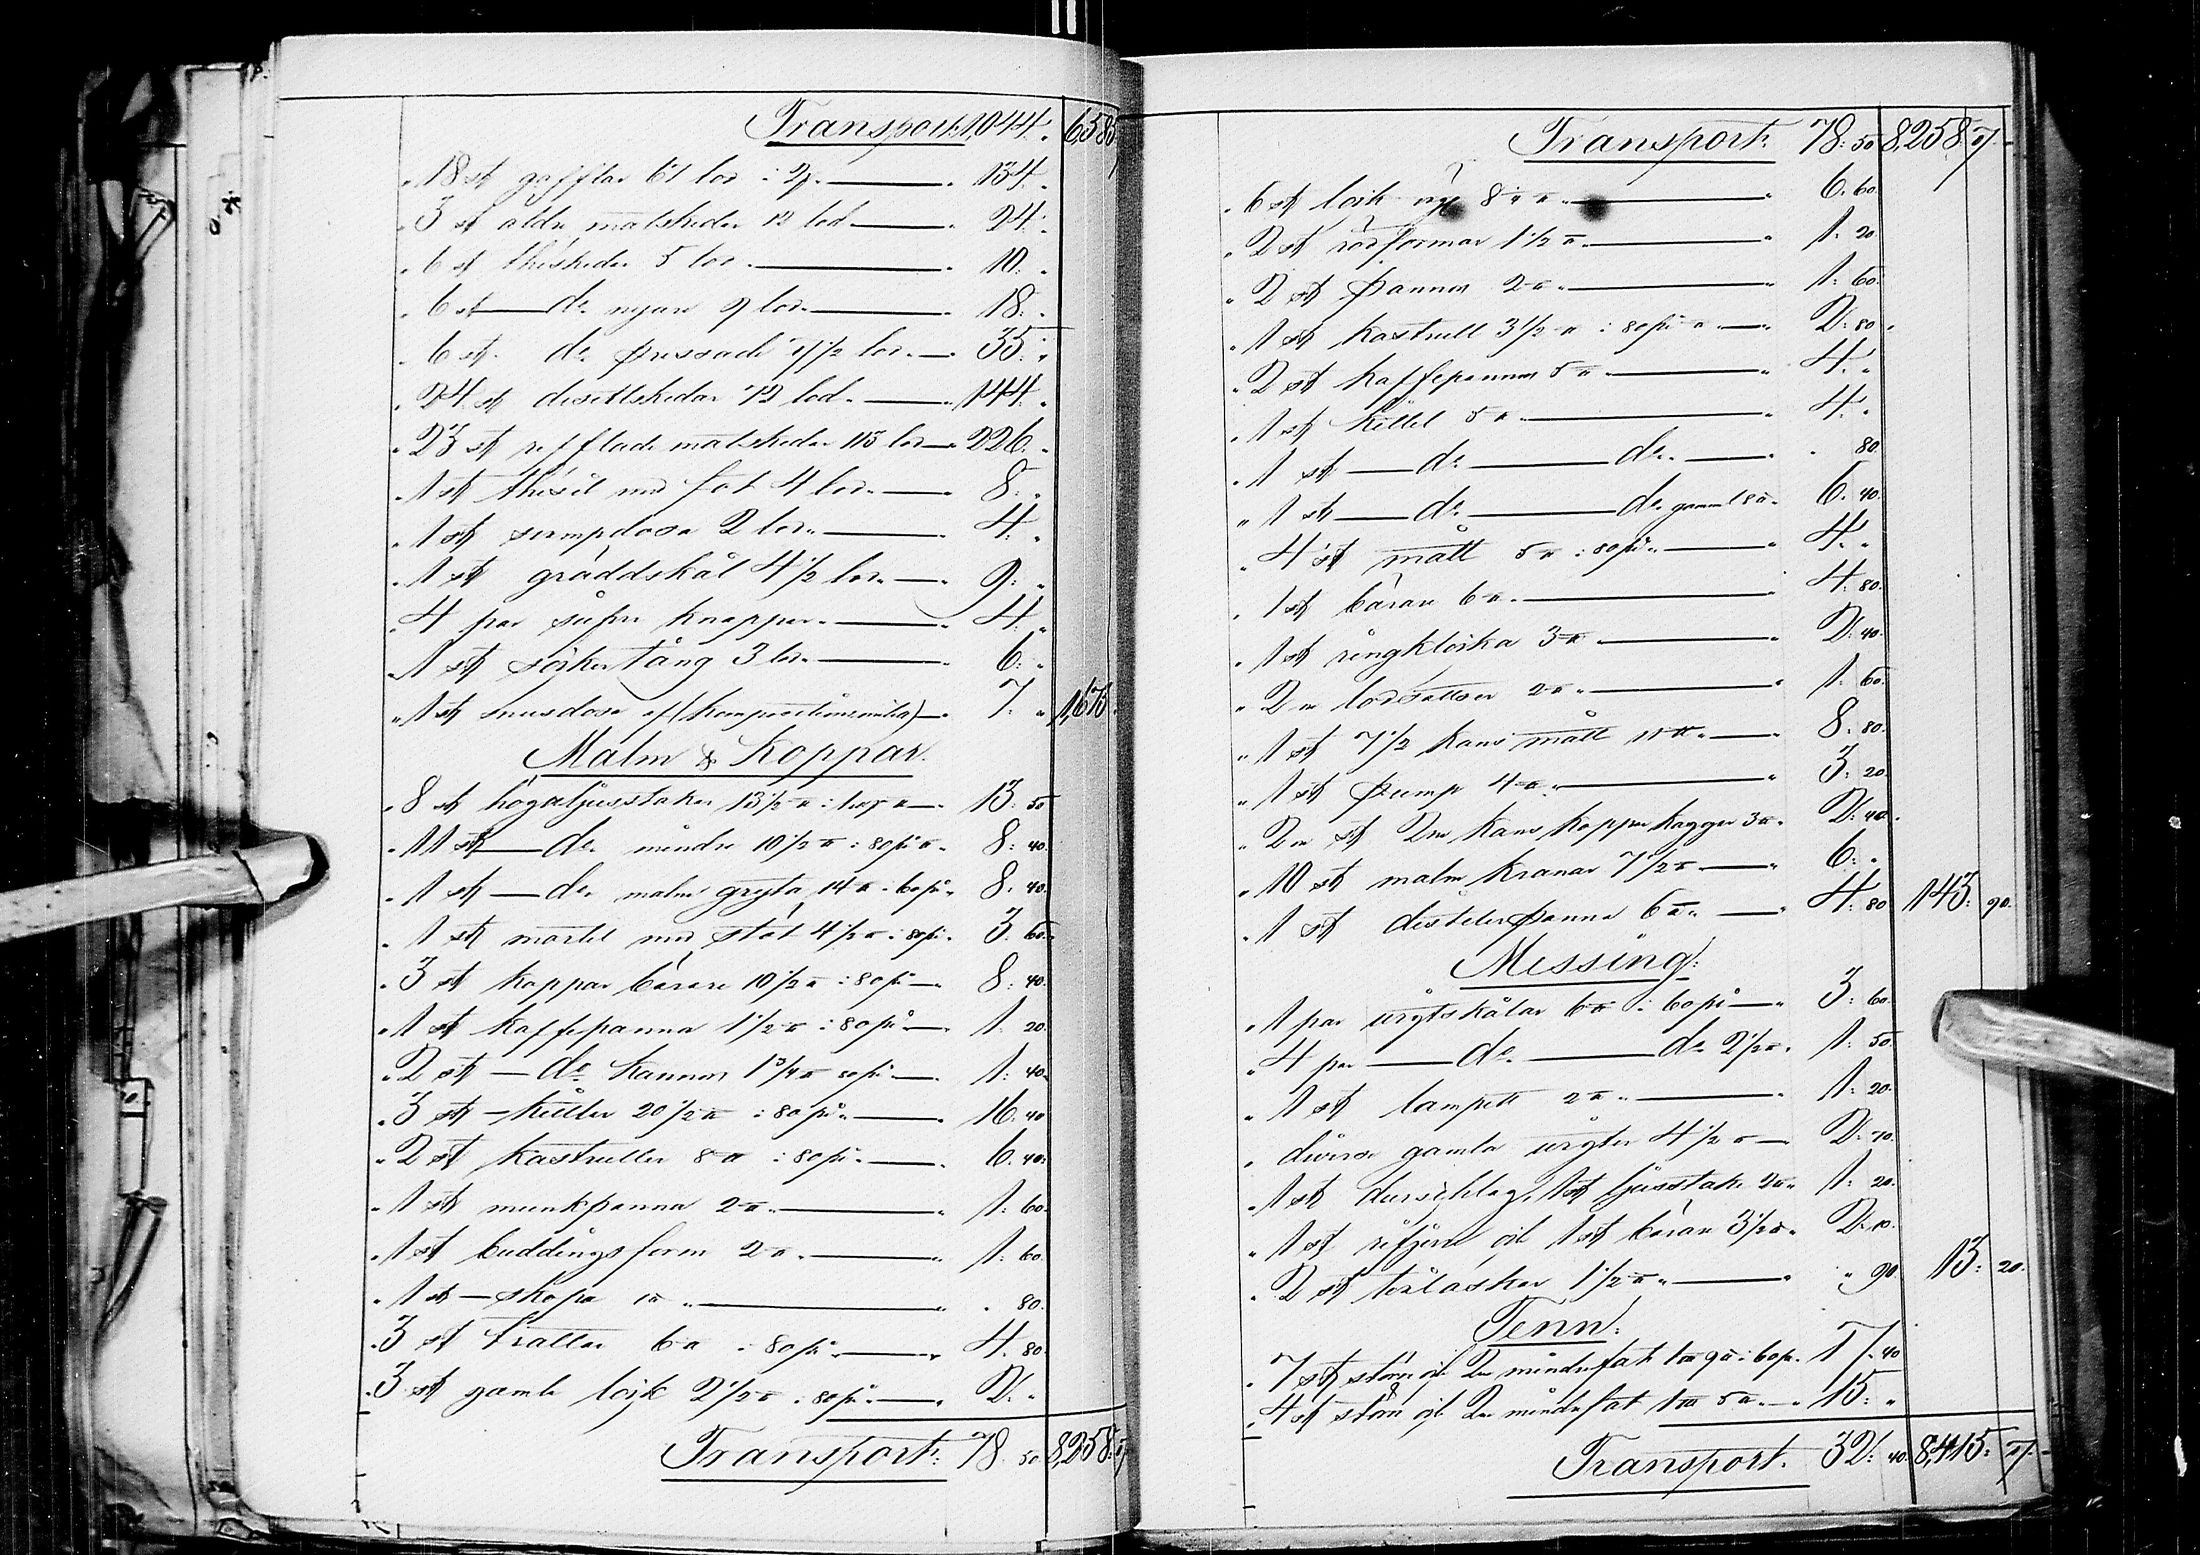 Transport: 1044. " 6,585
" 18 st gafflar 67 lod : 2/. " 134. "
" 3 st äldre matskedar 12 lod " 24: "
" 6 st theskedar 5 lod " 10: "
" 6 st do nyare 9 lod " 18: "
" 6 st do pressade 17 1/2 lod " 35: "
" 24 st desertskedar 72 lod " 144: "
" 23 st refflade matskedar 113 lod " 226. "
" 1 st thesil med fot 4 lod " 8: "
" 1 st svampdosa 2 lod " 4: "
" 1 st gräddskål 4 1/2 lod " 9: "
" 4 par knappar " 4: "
" 1 st sockertång 3 lod " 6: "
" 1 st snusdosa af (Komposition) " 7: " 1,673
Malm & Koppar.
" 8 st höga ljusstakar 13 1/2 ℔ 13: 50
" 11 st do mindre 10 1/2 ℔ : 80 pr ℔ " 8: 40.
" 1 st do malm gryta 14 ℔ : 60 pr " 8. 40.
" 1 st mortel med stöt 4 1/2 ℔ : 80 pr " 3. 60.
" 3 st koppar bärare 10 1/2 ℔ : 80 pr " 8: 40.
" 1 st kaffepanna 1 1/2 ℔ : 80 pr " 1. 20.
" 2 st do kannor 1 3/4 ℔ 80 pr " 1: 40.
" 3 st kittlar 20 1/2 ℔ : 80 pr " 16: 40
" 2 st kastruller 8 ℔ : 80 pr " 6. 40.
" 1 st munkpanna 2 ℔ " 1: 60.
" 1 st buddingsform 2 ℔ " 1: 60.
" 1 st skopa 1 ℔ " " 80.
" 3 st trattar 6 ℔ : 80 pr " 4. 80.
" 3 st gamle lock 2 1/2 ℔ : 80 pr " 2: "
Transport: 78. 50. 8,258: 7
Transport: 78: 50 8,258: 7.
" 6 st lock 8 ℔ " 6. 60.
" 2 st formar 1 1/2 ℔ " 1: 20
" 2 st pannor 2 ℔ " 1: 60.
" 1 st kastrull 3 1/2 ℔ : 80 pr ℔ " 2: 80.
" 2 st kaffepannor 5 ℔ " 4: "
" 1 st kittel 5 ℔ " 4: "
" 1 st do do " " 80.
" 1 st do do gammal 8 ℔ " 6. 40.
" 4 st mått 5 ℔ : 80 pr " 4: "
" 1 st bärare 6 ℔ " 4: 80.
" 1 st ringklocka 3 ℔ " 2: 40.
" 2 ne lodsattser 2 ℔ " 1: 60.
" 1 st 7 1/2 kans mått 11 ℔ " 8. 80.
" 1 st pump 4 ℔ " 3: 20.
" 2 ne st 2 ne kans koppar kaggar 3 ℔ " 2: 40.
" 10 st malm kranar 7 1/2 ℔ " 6: "
" 1 st destilerpanna 6 ℔ " 4: 80 143: 90.
Messing:
" 1 par vigtskålar 6 ℔ : 60 pr " 3: 60.
" 4 par do do 2 1/2 ℔ " 1: 50.
" 1 st lampett 2 ℔ " 1: 20.
" diverse gamla vigter 4 1/2 ℔ 2: 70.
" 1 st durschlag, 1 st ljusstake 2 ℔ " 1: 20.
" 1 st rifjern och 1 st bärare 3 1/2 ℔ " 2: 10.
" 2 st 1 1/2 ℔ " " 90 13: 20.
Tenn:
" 7 st större och 2 ne mindre fat 9 ℔ : 60 pr. 17. 40
" 4 st större och 2 ne mindre fat 5 ℔ " 15: "
Transport: 32: 40. 8,415: 7.